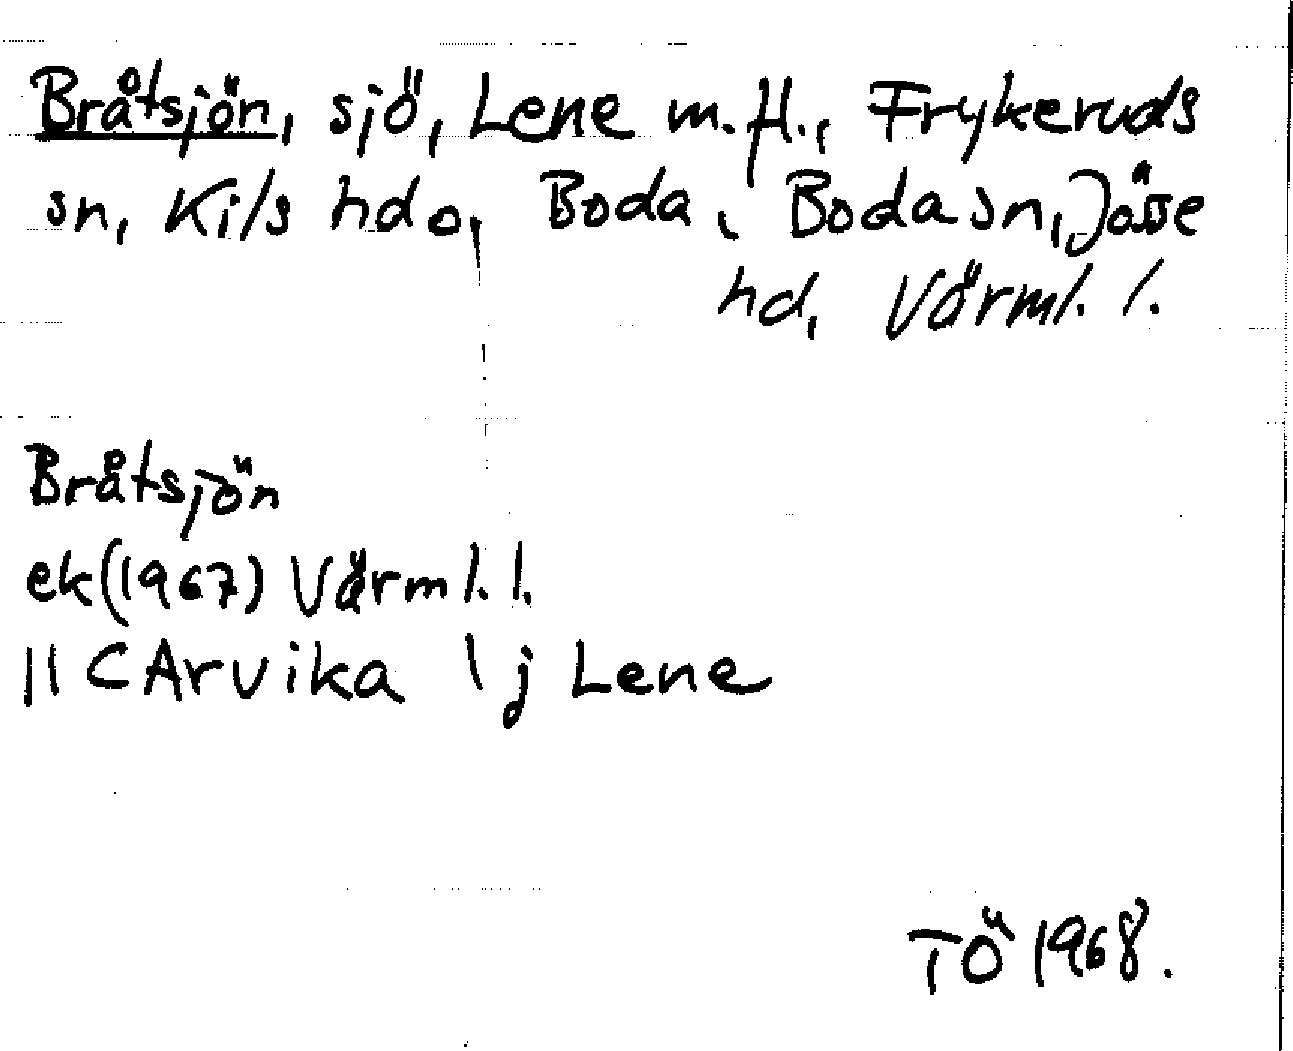 Bråtsjön, sjö, Lene m.fl., Frykeruds
sn, Kils hd o, Boda, Boda sn, Jösse
hd, Värml. l.
Bråtsjön
ek (1967) Värml. l.
11 C Arvika \ j Lene
TÖ 1968.